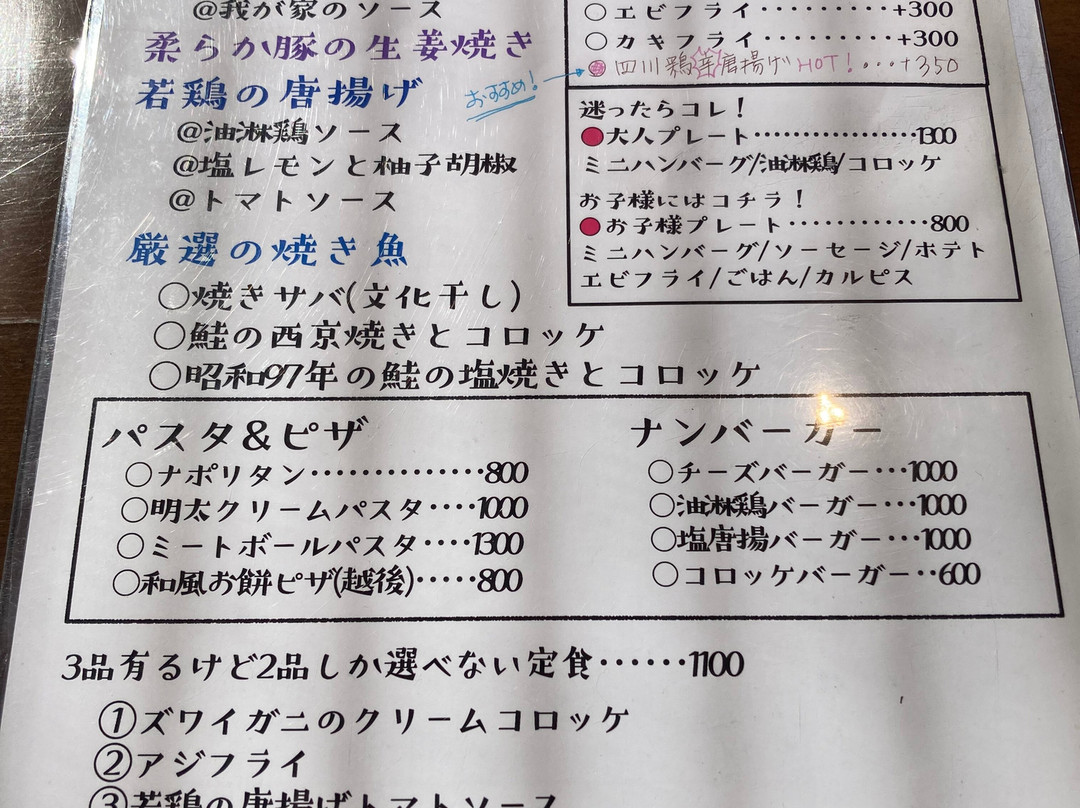 @我が家のソース
柔らか豚の生姜焼き
若鶏の唐揚げ
@油淋鶏ソース
@塩レモンと柚子胡椒
@トマトソース
厳選の焼き魚
○焼きサバ(文化干し)
○鮭の西京焼きとコロッケ
○昭和97年の鮭の塩焼きとコロッケ
○エビフライ·········+300
○カキフライ·········+300
おすすめ!→
四川鶏唐揚げHOT!...+350
迷ったらコレ!
●大人プレート·················1300
ミニハンバーグ/油淋鶏/コロッケ
お子様にはコチラ!
●お子様プレート············800
ミニハンバーグ/ソーセージ/ホテト
エビフライ/ごはん/カルピス
パスタ&ピザ
○ナポリタン··············800
○明太クリームパスタ····1000
○ミートボールパスタ····1300
○和風お餅ピザ(越後)·····800
ナンバーガー
○チーズバーガー···1000
○油淋鶏バーガー···1000
○塩唐揚バーガー···1000
○コロッケバーガー··600
3品有るけど2品しか選べない定食······1100
①ズワイガニのクリームコロッケ
②アジフライ
③若鶏の唐揚げトマトソース